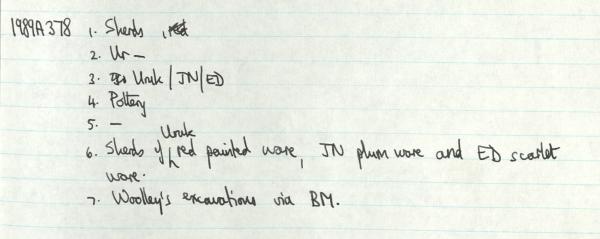 1989A378 1. Sherds
2. Ur —
3. Uruk / JN / ED
4. Pottery
5. —
6. Sherds of Uruk red painted ware, JN plum ware and ED scarlet
ware.
7. Woolley's excavations via BM.